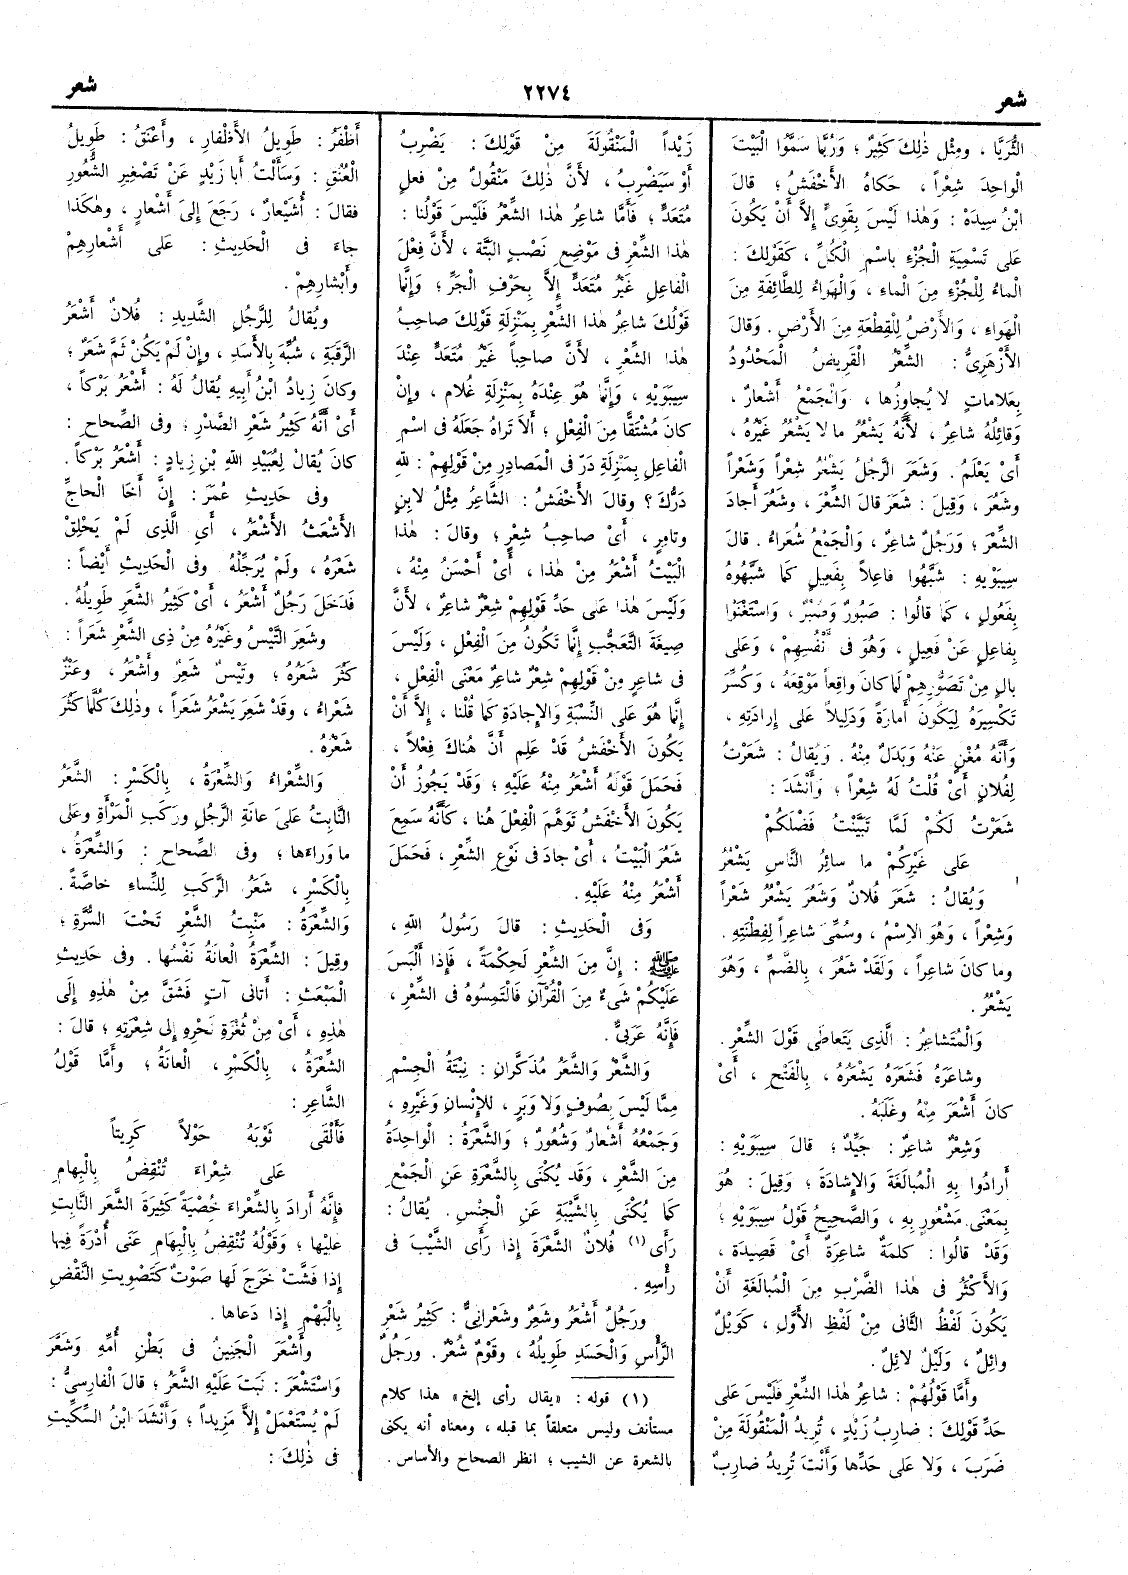 شعر
٢٢٧٤
شعر
الثُّرَيَّا ، ومِثْل ذٰلِكَ كَثِيرٌ ؛ وَرُبَّما سَمَّوُا الْبَيْتَ
الْواحِدَ شِعْراً ، حَكاهُ الأَخْفَشُ ؛ قالَ
ابْنُ سِيدَهْ : وَهٰذا لَيْسَ بِقَوِىٍّ إِلاَّ أَنْ يَكُونَ
عَلَى تَسْمِيَةِ الْجُزْءِ باسْمِ الْكُلِّ ، كَقَوْلِكَ :
الْماءُ لِلْجُزْءِ مِنَ الْماءِ ، والْهَواءُ لِلطَّائِفَةِ مِنَ
الْهَواءِ ، وَالأَرْضُ لِلْقِطْعَةِ مِنَ الأَرْضِ . وَقالَ
الأَزْهَرِىُّ : الشِّعْرُ الْقَرِيضُ الْمَحْدُودُ
بِعَلاماتٍ لا يُجاوِزُها ، وَالْجَمْعُ أَشْعارٌ ،
وَقائِلُهُ شاعِرٌ ، لأَنَّهُ يَشْعُرُ ما لا يَشْعُرُ غَيْرُهُ ،
أَىْ يَعْلَمُ . وَشَعَرَ الرَّجُلُ يَشْعُرُ شِعْراً وَشَعْراً
وشَعُرَ ، وَقِيلَ : شَعَرَ قالَ الشِّعْرَ ، وشَعُرَ أَجادَ
الشِّعْرَ ؛ وَرَجُلٌ شاعِرٌ ، وَالْجَمْعُ شُعَراءُ . قالَ
سِيبَوَيْهِ : شَبَّهُوا فاعِلاً بِفَعِيلٍ كَما شَبَّهُوهُ
بِفَعُولٍ ، كَما قالُوا : صَبُورٌ وَصُبُرٌ ، وَاسْتَغْنَوْا
بِفاعِلٍ عَنْ فَعِيلٍ ، وَهُوَ فى أَنْفُسِهِمْ ، وَعَلَى
بالٍ مِنْ تَصَوُّرِهِمْ لَما كانَ واقِعاً مَوْقِعَهُ ، وَكُسِّرَ
تَكْسِيرَهُ لِيَكُونَ أَمارَةً وَدَلِيلاً عَلَى إِرادَتِهِ ،
وَأَنَّهُ مُغْنٍ عَنْهُ وَبَدَلٌ مِنْهُ . وَيُقالُ : شَعَرْتُ
لِفُلانٍ أَىْ قُلْتُ لَهُ شِعْراً ؛ وَأَنْشَدَ :
شَعَرْتُ لَكُمْ لَمَّا تَبَيَّنْتُ فَضْلَكُمْ
عَلَى غَيْرِكُمْ ما سائِرُ النَّاسِ يَشْعُرُ
وَيُقالُ : شَعَرَ فُلانٌ وَشَعُرَ يَشْعُرُ شَعْراً
وَشِعْراً ، وَهُوَ الاِسْمُ ، وَسُمِّىَ شاعِراً لِفِطْنَتِهِ .
وما كانَ شاعِراً ، وَلَقَدْ شَعُرَ ، بِالضَّمِّ ، وَهُوَ
يَشْعُرُ .
وَالْمُتَشاعِرُ : الَّذِى يَتَعاطَى قَوْلَ الشِّعْرِ .
وشاعَرَهُ فَشَعَرَهُ يَشْعَرُهُ ، بِالْفَتْحِ ، أَىْ
كانَ أَشْعَرَ مِنْهُ وغَلَبَهُ .
وَشِعْرٌ شاعِرٌ : جَيِّدٌ ؛ قالَ سِيبَوَيْهِ :
أَرادُوا بِهِ الْمُبالَغَةَ وَالإِشادَةَ ؛ وَقِيلَ : هُوَ
بِمَعْنَى مَشْعُورٍ بِهِ ، وَالصَّحِيحُ قَوْلُ سِيبَوَيْهِ ؛
وَقَدْ قالُوا : كَلِمَةٌ شاعِرَةٌ أَىْ قَصِيدَة ،
وَالأَكْثَرُ فى هٰذا الضَّرْبِ مِنَ الْمُبالَغَةِ أَنْ
يَكُونَ لَفْظُ الثَّانِى مِنْ لَفْظِ الأَوَّلِ ، كَوَيْلٌ
وائِلٌ ، وَلَيْلٌ لائِلٌ .
وأَمَّا قَوْلُهُمْ : شاعِرُ هٰذا الشِّعْرِ فَلَيْسَ عَلَى
حَدِّ قَوْلِكَ : ضارِبُ زَيْدٍ ، تُرِيدُ الْمَنْقُولَةَ مِنْ
ضَرَبَ ، وَلا عَلَى حَدِّها وَأَنْتَ تُرِيدُ ضارِبٌ
زَيْداً الْمَنْقُولَةَ مِنْ قَوْلِكَ : يَضْرِبُ
أَوْ سَيَضْرِبُ ، لأَنَّ ذٰلِكَ مَنْقُولٌ مِنْ فعلٍ
مُتَعَدٍّ ؛ فَأَمَّا شاعِرُ هٰذا الشِّعْرِ فَلَيْسَ قَوْلُنا :
هٰذا الشِّعْرِ فى مَوْضِعِ نَصْبٍ البَتَّة ، لأَنَّ فِعْلَ
الْفاعِلِ غَيْرُ مُتَعَدٍّ إِلاَّ بِحَرْفِ الْجَرِّ ؛ وَإِنَّما
قَوْلُكَ شاعِرُ هٰذا الشِّعْرِ بِمَنْزِلَةِ قَوْلِكَ صاحِبُ
هٰذا الشِّعْرِ ، لأَنَّ صاحِباً غَيْرُ مُتَعَدٍّ عِنْدَ
سِيبَوَيْهِ ، وَإِنَّما هُوَ عِنْدَهُ بِمَنْزِلَةِ غُلامٍ ، وإِنْ
كانَ مُشْتَقًّا مِنَ الْفِعْلِ ؛ أَلا تَراهُ جَعَلَهُ فى اسْمِ
الْفاعِلِ بِمَنْزِلَةِ دَرّ فى الْمَصادِرِ مِنْ قَوْلِهِمْ : للهِ
دَرُّكَ ؟ وقالَ الأَخْفَشُ : الشَّاعِرُ مِثْلُ لابِنٍ
وتامِرٍ ، أَىْ صاحِبُ شِعْرٍ ؛ وقالَ : هٰذا
الْبَيْتُ أَشْعَرُ مِنْ هٰذا ، أَىْ أَحْسَنُ مِنْهُ ،
وَلَيْسَ هٰذا عَلَى حَدِّ قَوْلِهِمْ شِعْرٌ شاعِرٌ ، لأَنَّ
صِيغَةَ التَّعَجُّبِ إِنَّما تَكُونُ مِنَ الْفِعْلِ ، وَلَيْسَ
فى شاعِرٍ مِنْ قَوْلِهِمْ شِعْرٌ شاعِرٌ مَعْنَى الْفِعْلِ ،
إِنَّما هُوَ عَلَى النِّسْبَةِ وَالإِجادَةِ كَما قُلْنا ، إِلاَّ أَنْ
يَكُونَ الأَخْفَشُ قَدْ عَلِمَ أَنَّ هُناكَ فِعْلاً ،
فَحَمَلَ قَوْلَهُ أَشْعَرُ مِنْهُ عَلَيْهِ ؛ وَقَدْ يَجُوزُ أَنْ
يَكُونَ الأَخْفَشُ تَوَهَّمَ الْفِعْلَ هُنا ، كَأَنَّهُ سَمِعَ
شَعُرَ الْبَيْتُ ، أَىْ جادَ فى نَوْعِ الشِّعْرِ ، فَحَمَلَ
أَشْعَرُ مِنْهُ عَلَيْهِ .
وَفى الْحَدِيثِ : قالَ رَسُولُ اللهِ ،
ﷺ : إِنَّ مِنَ الشِّعْرِ لَحِكْمَةً ، فَإِذا أَلْبَسَ
عَلَيْكُمْ شَىْءٌ مِنَ الْقُرْآنِ فَالْتَمِسُوهُ فى الشِّعْرِ ،
فَإِنَّهُ عَرَبِىٌّ .
وَالشَّعْرُ وَالشَّعَرُ مُذَكَّرانِ : نِبْتَةُ الْجِسْمِ
مِمَّا لَيْسَ بِصُوفٍ وَلا وَبَرٍ ، لِلإِنْسانِ وَغَيْرِهِ ،
وَجَمْعُهُ أَشْعارٌ وَشُعُورٌ ؛ وَالشَّعْرَةُ : الْواحِدَةُ
مِنَ الشَّعْرِ ، وَقَد يُكْنَى بِالشَّعْرَةِ عَنِ الْجَمْعِ
كَما يُكْنَى بِالشَّيْبَةِ عَنِ الْجِنْسِ . يُقالُ :
رَأَى (١) فُلانٌ الشَّعْرَةَ إِذا رَأَى الشَّيْبَ فى
رَأْسِهِ .
ورَجُلٌ أَشْعَرُ وشَعِرٌ وشَعْرانِىٌّ : كَثِيرُ شَعْرِ
الرَّأْسِ وَالْجَسَدِ طَوِيلُهُ ، وقَوْمٌ شُعْرٌ . ورَجُلٌ
(١) قوله : «يقال رأى إلخ» هذا كلام
مستأنف وليس متعلقاً بما قبله ، ومعناه أنه يكنى
بالشعرة عن الشيب ؛ انظر الصحاح والأساس .
أَظْفَرُ : طَوِيلُ الأَظْفارِ ، وأَعْنَقُ : طَوِيلُ
الْعُنُقِ : وَسَأَلْتُ أَبا زَيْدٍ عَنْ تَصْغِيرِ الشُّعُورِ
فقالَ : أُشَيْعارٌ ، رَجَعَ إِلَى أَشْعارٍ ، وهكَذا
جاءَ فى الْحَدِيثِ : عَلَى أَشْعارِهِمْ
وأَبْشارِهِمْ .
ويُقالُ لِلرَّجُلِ الشَّدِيدِ : فُلانٌ أَشْعَرُ
الرَّقَبَةِ ، شُبِّهَ بِالأَسَدِ ، وإِنْ لَمْ يَكُنْ ثَمَّ شَعَرٌ ؛
وكانَ زِيادُ ابْنُ أَبِيهِ يُقالُ لَهُ : أَشْعَرُ بَرْكاً ،
أَىْ أَنَّهُ كَثِيرُ شَعْرِ الصَّدْرِ ؛ وفى الصِّحاحِ :
كانَ يُقالُ لِعُبَيْدِ اللهِ بْنِ زِيادٍ : أَشْعَرُ بَرْكاً .
وفى حَدِيثِ عُمَرَ : إِنَّ أَخَا الْحاجِّ
الأَشْعَثُ الأَشْعَرُ ، أَىِ الَّذِى لَمْ يَحْلِقْ
شَعْرَهُ ، ولَمْ يُرَجِّلْهُ وفى الْحَدِيثِ أَيْضاً :
فَدَخَلَ رَجُلٌ أَشْعَرُ ، أَىْ كَثِيرُ الشَّعَرِ طَوِيلُهُ .
وشَعِرَ التَّيْسُ وغَيْرُهُ مِنْ ذِى الشَّعْرِ شَعَراً :
كَثُرَ شَعَرُهُ ؛ وتَيْسٌ شَعِرٌ وأَشْعَرُ ، وعَنْزٌ
شَعْراءُ ، وقَدْ شَعِرَ يَشْعَرُ شَعَراً ، وذٰلِكَ كُلَّما كَثُرَ
شَعْرُهُ .
وَالشِّعْراءُ وَالشِّعْرَةُ ، بِالْكَسْرِ : الشَّعَرُ
النَّابِتُ عَلَى عانَةِ الرَّجُلِ ورَكَبِ الْمَرْأَةِ وعَلَى
ما وَراءَها ؛ وفى الصِّحاحِ : وَالشِّعْرَةُ ،
بِالْكَسْرِ ، شَعَرُ الرَّكَبِ لِلنِّساءِ خاصَّةً .
وَالشِّعْرَةُ : مَنْبِتُ الشَّعْرِ تَحْتَ السُّرَّةِ ؛
وقِيلَ : الشِّعْرَةُ الْعانَةُ نَفْسُها . وفى حَدِيثِ
الْمَبْعَثِ : أَتانِى آتٍ فَشَقَّ مِنْ هٰذِهِ إِلَى
هٰذِهِ ، أَىْ مِنْ ثُغْرَةِ نَحْرِهِ إِلى شِعْرَتِهِ ؛ قالَ :
الشِّعْرَةُ ، بِالْكَسْرِ ، الْعانَةُ ؛ وأَمَّا قَوْلُ
الشَّاعِرِ :
فَأَلْقَى ثَوْبَهُ حَوْلاً كَرِيتاً
عَلَى شِعْراءَ تُنْقِضُ بِالْبِهامِ
فَإِنَّهُ أَرادَ بِالشِّعْراءِ خُصْيَةً كَثِيرَةَ الشَّعَرِ النَّابِتِ
عليْها ؛ وَقَوْلُهُ تُنْقِضُ بِالْبِهامِ عَنَى أُدْرَةً فِيها
إِذا فَشَّتْ خَرَجَ لَها صَوْتٌ كَتَصْوِيتِ النَّقْضِ
بِالْبَهْمِ إِذا دَعاها .
وأَشْعَرَ الْجَنِينُ فى بَطْنِ أُمِّهِ وَشَعَّرَ
وَاسْتَشْعَرَ : نَبَتَ عَلَيْهِ الشَّعَرُ ؛ قالَ الْفارِسِىُّ :
لَمْ يُسْتَعْمَلْ إِلاَّ مَزِيداً ؛ وَأَنْشَدَ ابْنُ السِّكِّيتِ
فى ذٰلِكَ :